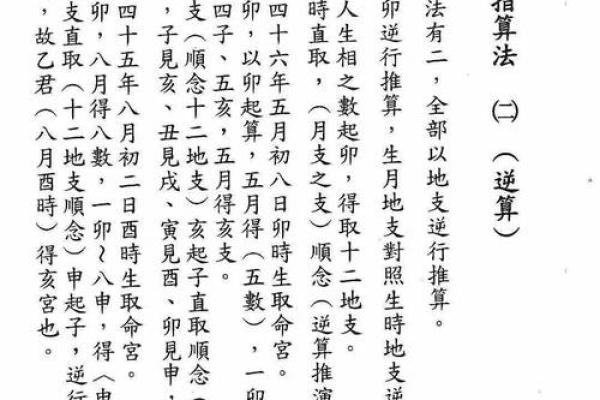 指算法 ㈡ （逆算）
法有二，全部以地支逆行推算。
卯逆行推算，生月地支對照生時地支逆
人生相之數起卯，得取十二地支。
時直取，（月支之支）順念（逆算推演
四十六年五月初八日卯時生取命宮。
卯，以卯起算，五月得（五數），一卯
四子、五亥，五月得亥支。
支（順念十二地支）亥起子直取順念（
，子見亥、丑見戌、寅見酉、卯見申，
四十五年八月初二日酉時生取命宮。
卯，八月得八數，一卯～八申，得〈申
支直取（十二地支順念）申起子，逆行
，故乙君（八月酉時）得亥宮也。